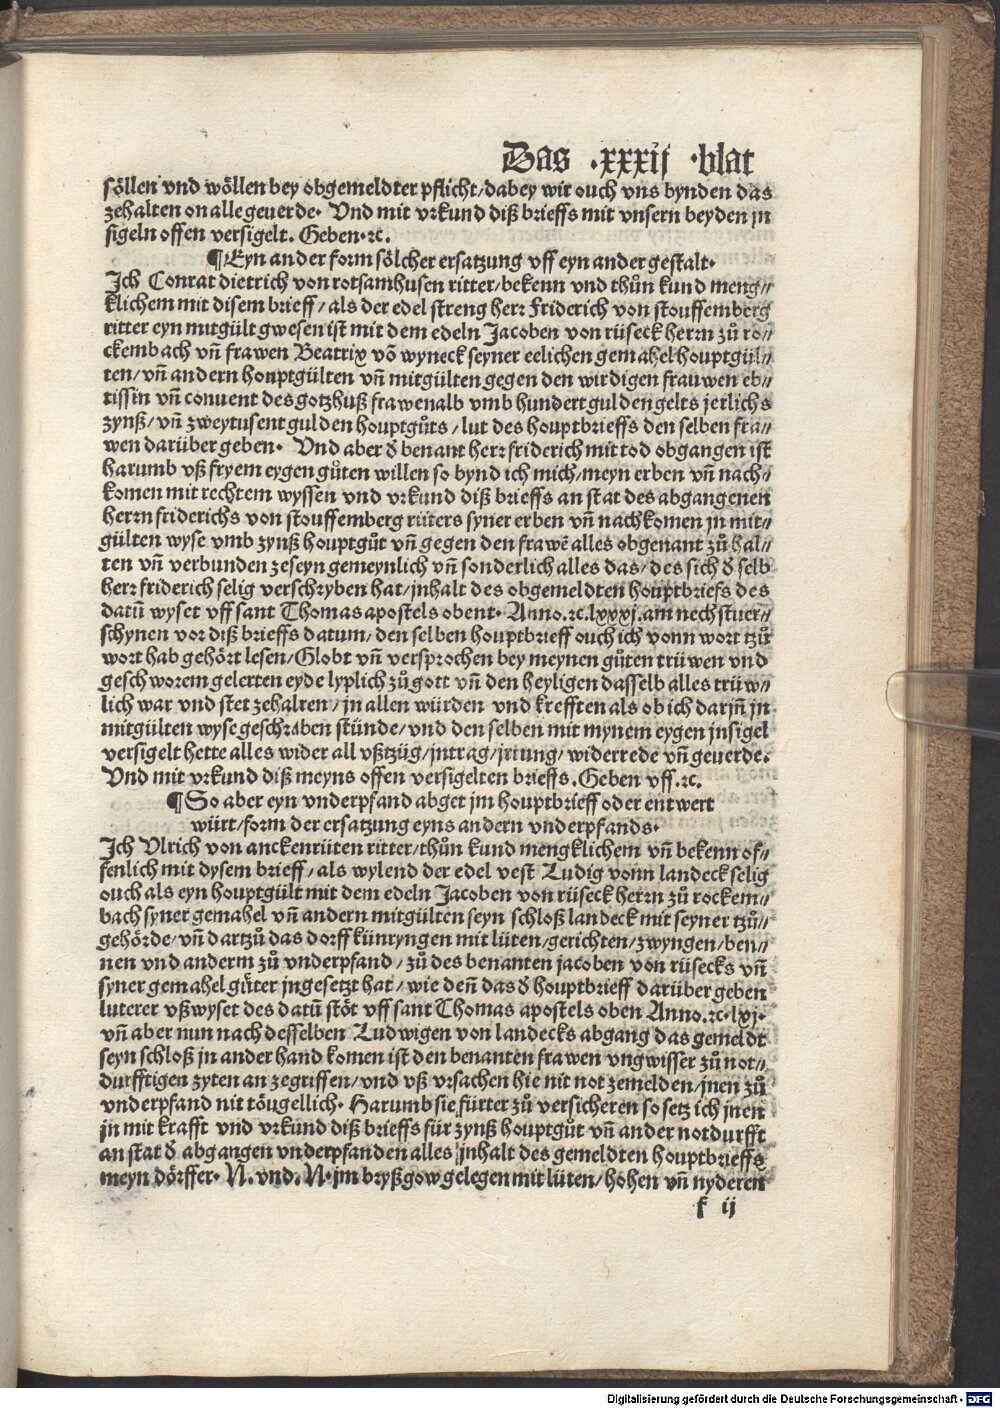 Das .xxxij .blat
söllen vnd wöllen bey obgemeldter pflicht/dabey wir ouch vns bynden das
zehalten on alle geuerde. Vnd mit vrkund diß brieffs mit vnsern beyden jn
sigeln offen versigelt. Geben.ꝛc.
¶Eyn ander form sölcher ersatzung vff eyn ander gestalt.
Jch Conrat dietrich von rotsamhusen ritter/bekenn vnd thůn kund meng⸗
klichem mit disem brieff/als der edel streng herr Friderich von stouffemberg
ritter eyn mitgült gwesen ist mit dem edeln Jacoben von rüseck herrn zů ro⸗
ckembach vñ frawen Beatrix vō wyneck seyner eelichen gemahel houptgül⸗
ten/vñ andern houptgülten vñ mitgülten gegen den wirdigen frauwen eb⸗
tissin vñ conuent des gotzhuß frawenalb vmb hundert gulden gelts jerlichs
zynß/vñ zweytusent gulden houptgůts/lut des houptbrieffs den selben fra⸗
wen darüber geben. Vnd aber ď benant herr friderich mit tod obgangen ist
harumb vß fryem eygen gůten willen so bynd ich mich/meyn erben vñ nach⸗
komen mit rechtem wyssen vnd vrkund diß brieffs an stat des abgangenen
herrn friderichs von stouffemberg riiters syner erben vñ nachkomen jn mit⸗
gülten wyse vmb zynß houptgůt vñ gegen den frawē alles obgenant zů hal⸗
ten vñ verbunden zeseyn gemeynlich vñ sonderlich alles das/des sich ď selb
herr friderich selig verschryben hat/jnhalt des obgemeldten houptbriefs des
datū wyset vff sant Thomas apostels obent. Anno.ꝛc.lxxxj.am nechstuer⸗
schynen vor diß brieffs datum/den selben houptbrieff ouch ich vonn wort tzů
wort hab gehört lesen/Globt vñ versprochen bey meynen gůten trüwen vnd
geschworem gelerten eyde lyplich zů gott vñ den heyligen dasselb alles trüw⸗
lich war vnd stet zehalten/jn allen würden vnd krefften als ob ich darjñ jn
mitgülten wyse geschriben stünde/vnd den selben mit mynem eygen jnsigel
versigelt hette alles wider all vßtzüg/jntrag/jrrung/widerrede vñ geuerde.
Vnd mit vrkund diß meyns offen versigelten brieffs.Geben vff.ꝛc.
¶So aber eyn vnderpfand abget jm houptbrieff oder entwert
würt/form der ersatzung eyns andern vnderpfands.
Jch Vlrich von anckenrüten ritter/thůn kund mengklichem vñ bekenn of⸗
fenlich mit dysem brieff/als wylend der edel vest Ludig vonn landeck selig
ouch als eyn houptgült mit dem edeln Jacoben von rüseck herrn zů rockem⸗
bach syner gemahel vñ andern mitgülten seyn schloß landeck mit seyner tzů⸗
gehörde/vñ dartzů das dorff künryngen mit lüten/gerichten/zwyngen/ben⸗
nen vnd anderm zů vnderpfand/zů des benanten jacoben von rüsecks vñ
syner gemahel güter jngesetzt hat/wie deñ das ď houptbrieff darüber geben
luterer vßwyset des datū stöt vff sant Thomas apostels oben Anno.ꝛc.lxj.
vñ aber nun nach desselben Ludwigen von landecks abgang das gemeldt
seyn schloß jn ander hand komen ist den benanten frawen vngwisser zů not⸗
durfftigen zyten an zegriffen/vnd vß vrsachen hie nit not zemelden/jnen zů
vnderpfand nit töugellich. Harumb sie fürter zů versicheren so setz ich jnen
jn mit krafft vnd vrkund diß brieffs für zynß houptgůt vñ ander notdurfft
an stat ď abgangen vnderpfanden alles jnhalt des gemeldten houptbrieffs
meyn dörffer. N.vnd.N.jm bryßgow gelegen mit lüten/hohen vñ nyderen
f ij
Digitalisierung gefördert durch die Deutsche Forschungsgemeinschaft - DFG